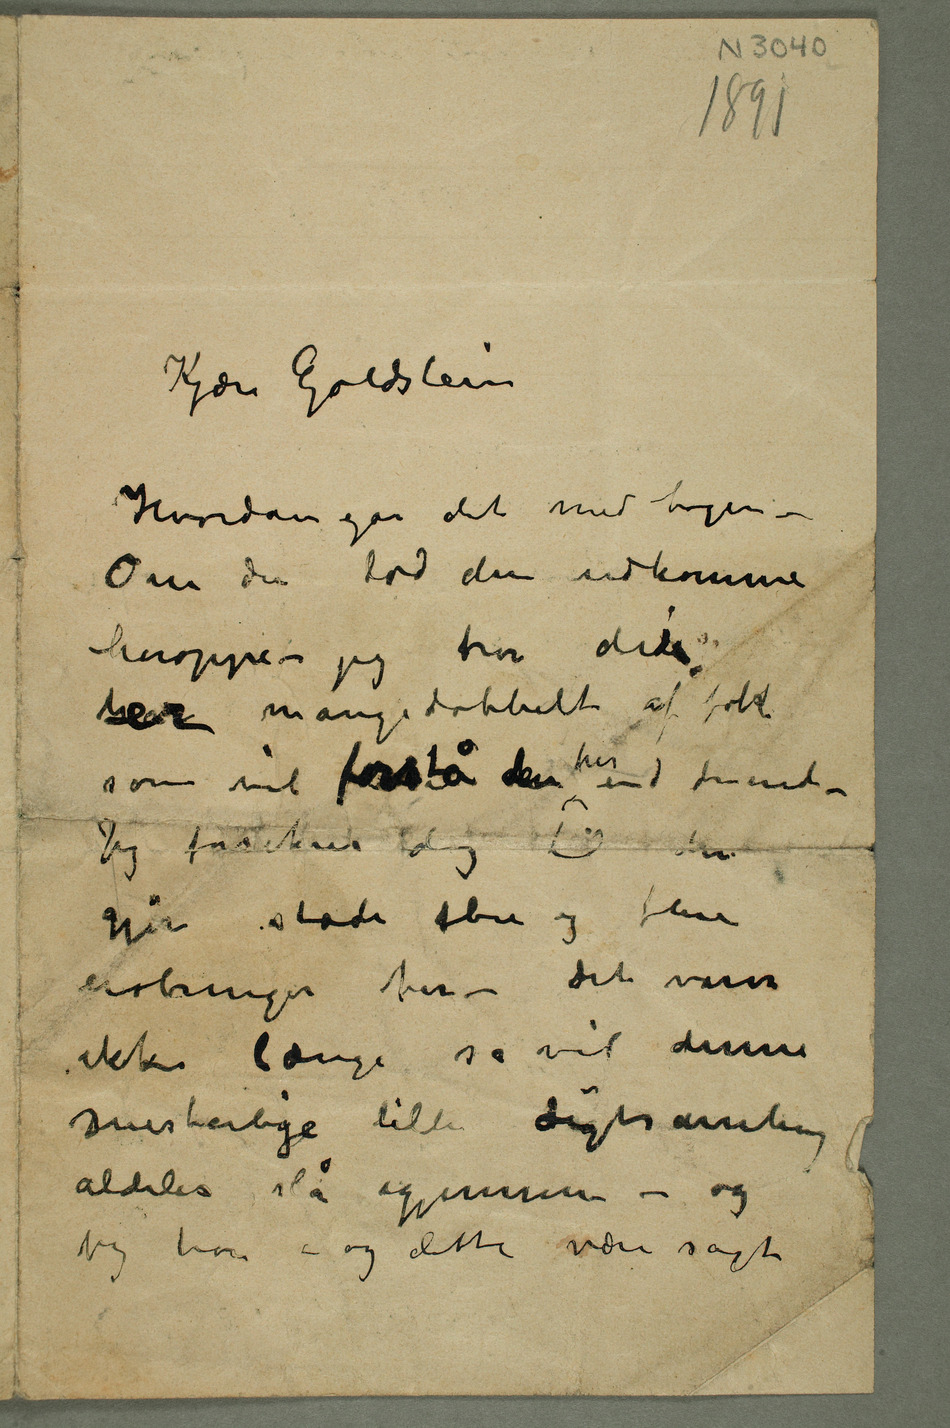 N 3040
1891
Kjære Goldstein
Hvordan går det med bogen –
Om du lod den udkomme
heroppe – jeg tror det er
mangedobbelt af folk
som vil forstå den her end dernede –
Jeg forsikrer dig den
gjør stadi flere og flere
erobringer her – det varer
ikke længe så vil denne
mesterlige lille digtsamling
aldeles slå igjennem – og
jeg tror – og dette være sagt